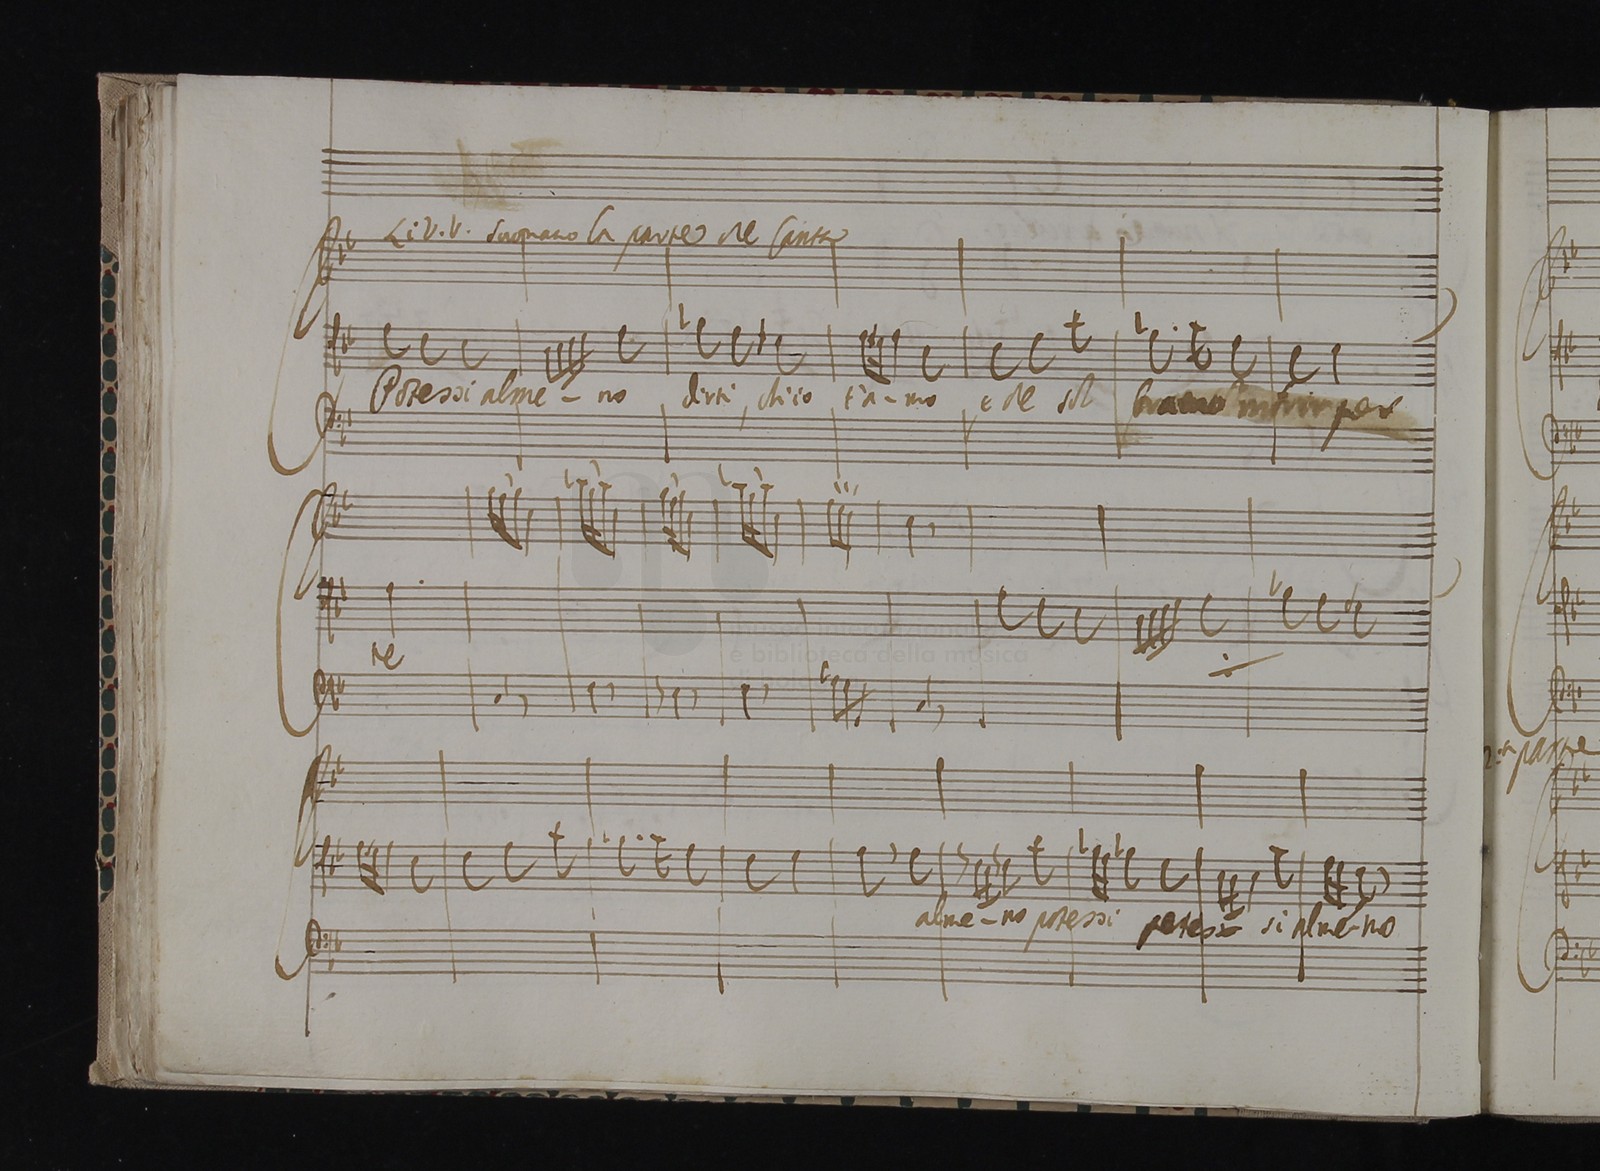 Li V. V. suonano la parte del Canto
Potessi alme - no dirti, ch'io t'a - mo e del sol bramo morir per
te
museo internazionale
e biblioteca della musica
alme - no potessi potessi si alme - no
2.a parte